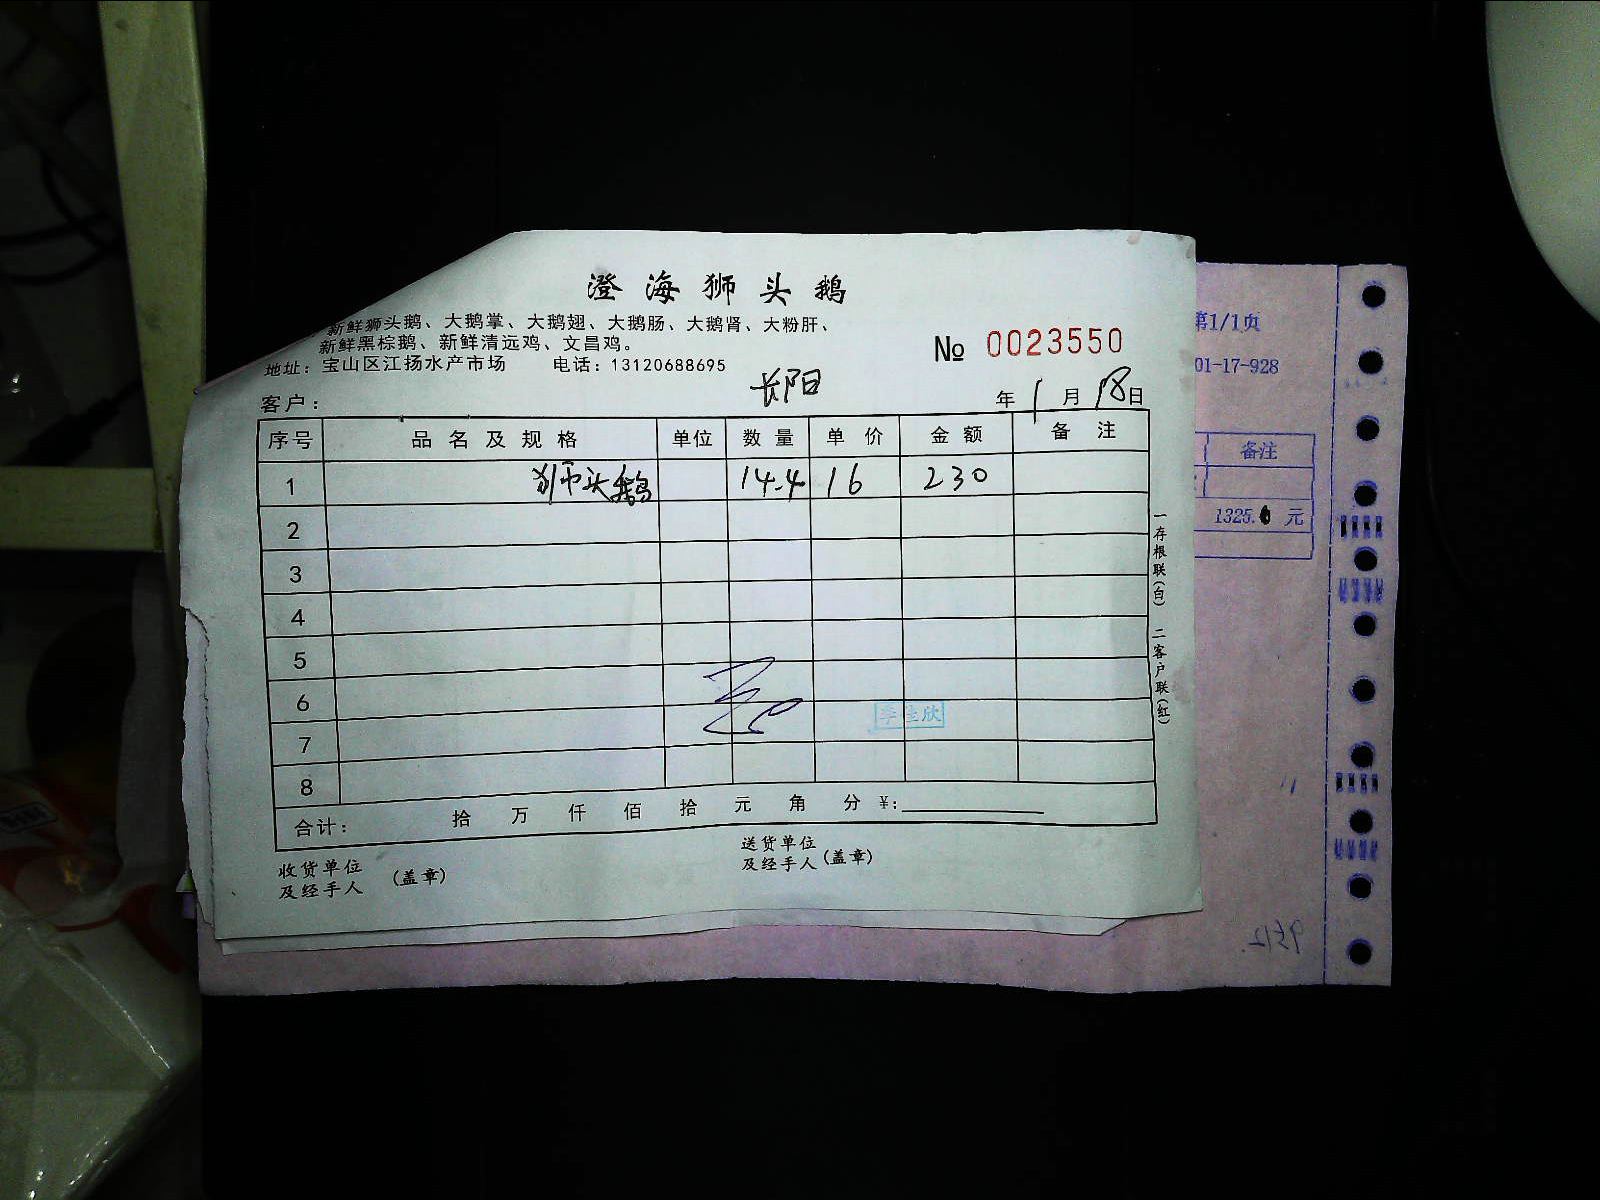 澄海狮头鹅
新鲜狮头鹅、大鹅掌、大鹅翅、大鹅肠、大鹅肾、大粉肝、
新鲜黑棕鹅、新鲜清远鸡、文昌鸡。
地址：宝山区江扬水产市场 电话：13120688695
№ 0023550
客户： 长阳 年 1 月 18 日
序号 品名及规格 单位 数量 单价 金额 备注
1 狮头鹅 14.4 16 230
2
3
4
5
6
7
8
合计： 拾 万 仟 佰 拾 元 角 分 ¥：
收货单位
及经手人 (盖章)
送货单位
及经手人 (盖章)
一存根联(白) 二客户联(红)
李佳欣
第1/1页
01-17-928
备注
元